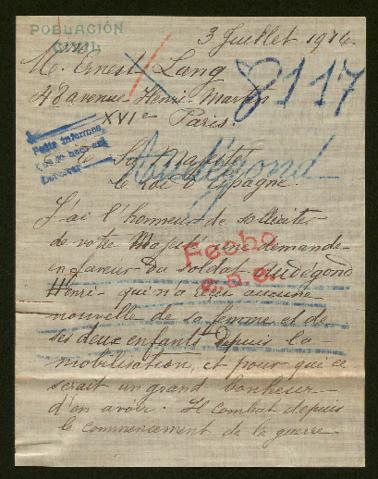 POBLACIÓN
CIVIL
3 Juillet 1916.
M. Ernest Lang
8117
48 avenue Henri-Martin
XVIe Paris.
A Sa Majesté
Le Roi d'Espagne.
Audégond
J'ai l'honneur de solliciter
de votre Majesté une demande
Fecho
en faveur du soldat Audégond
Henri - qui n'a reçu aucune
nouvelle de sa femme et de
ses deux enfants depuis la
mobilisation, et pour qui ce
serait un grand bonheur
d'en avoir. Il combat depuis
le commencement de la guerre